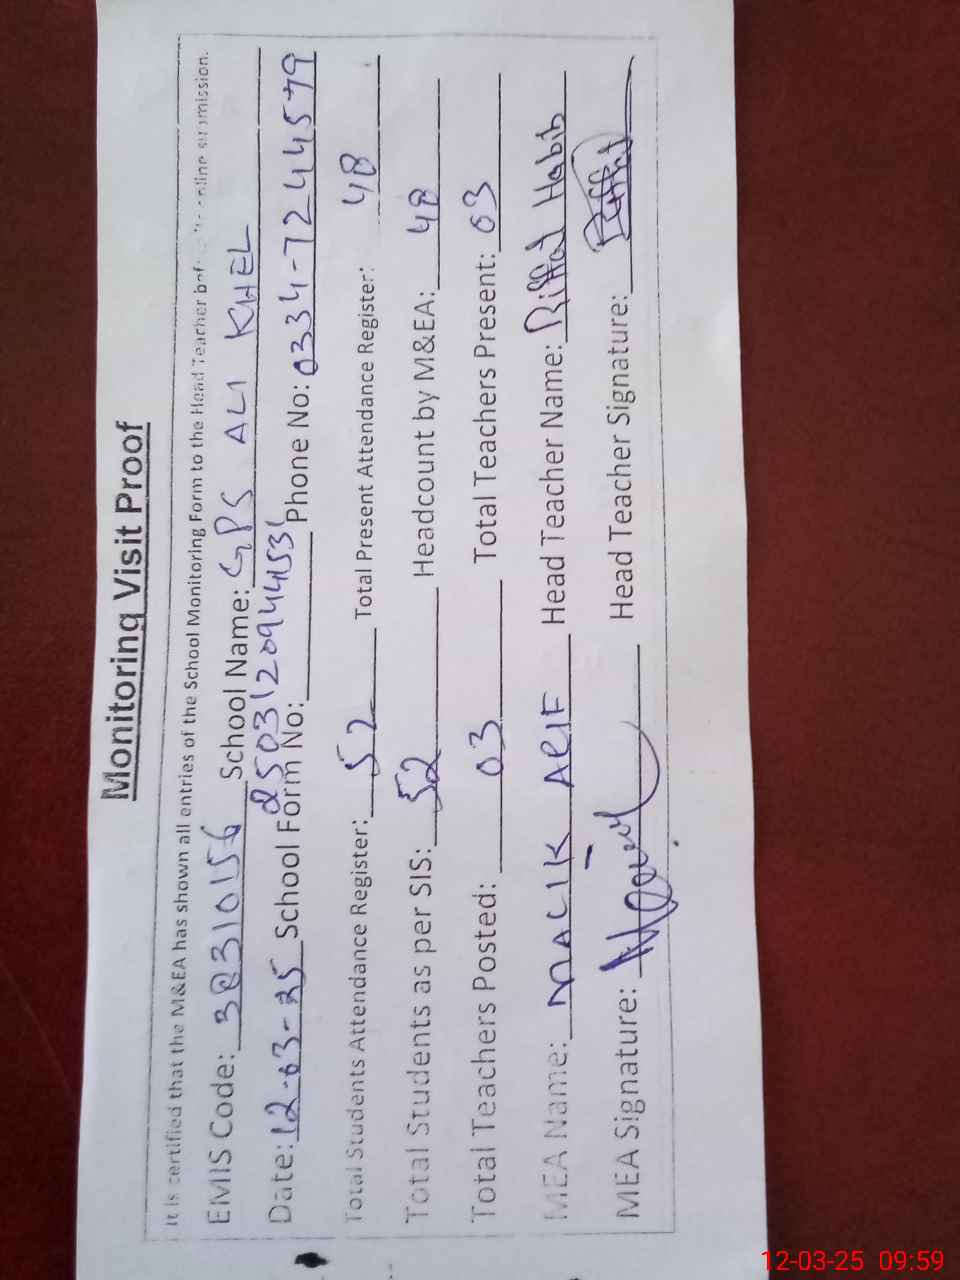 Monitoring Visit Proof
It is certified that the M&EA has shown all entries of the School Monitoring Form to the Head Teacher before online submission.
EMIS Code: 38310156 School Name: GPS ALI KHEL
Date: 12-03-25 School Form No: 2503120944531 Phone No: 0334-7244579
Total Students Attendance Register: 52 Total Present Attendance Register: 48
Total Students as per SIS: 52 Headcount by M&EA: 48
Total Teachers Posted: 03 Total Teachers Present: 03
MEA Name: MALIK ARIF Head Teacher Name: Riffat Habib
MEA Signature: Head Teacher Signature: Riffat
12-03-25 09:59